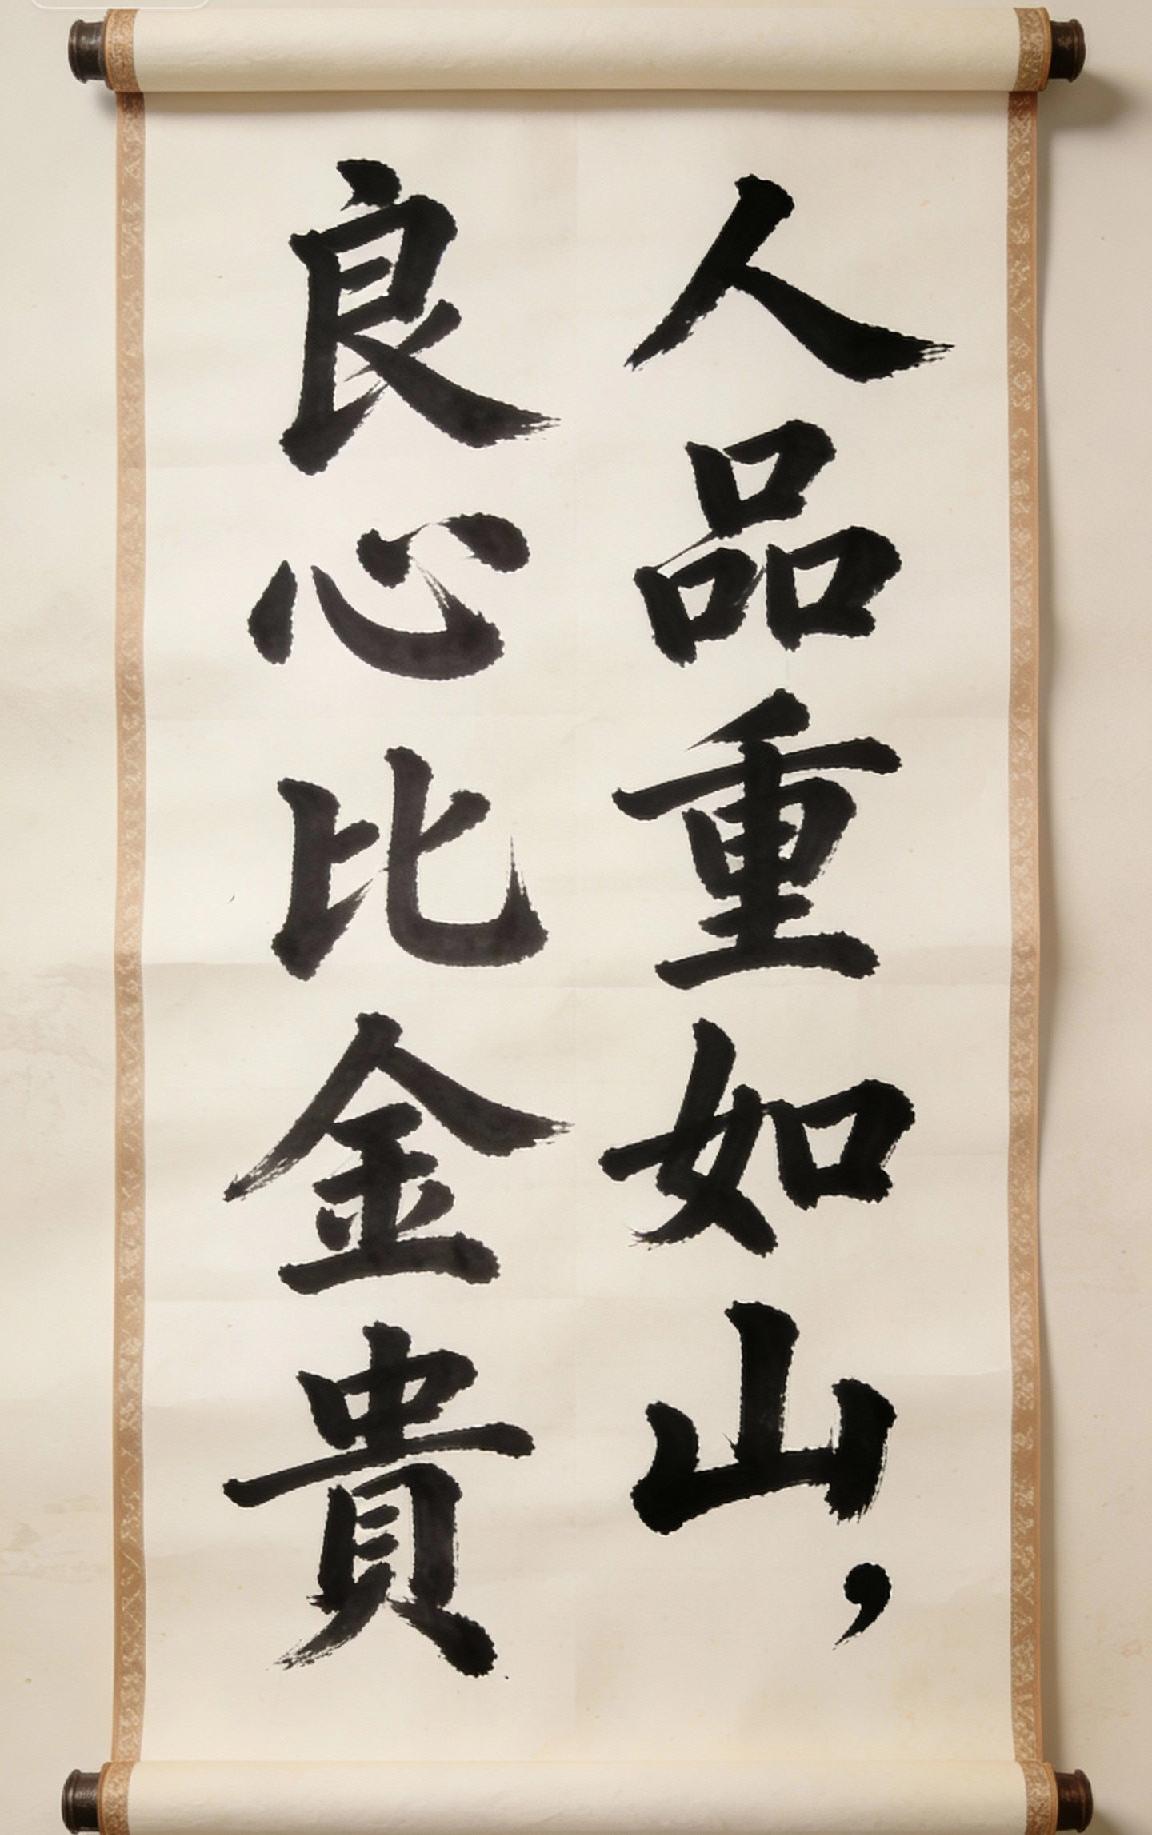 人品重如山，
良心比金貴